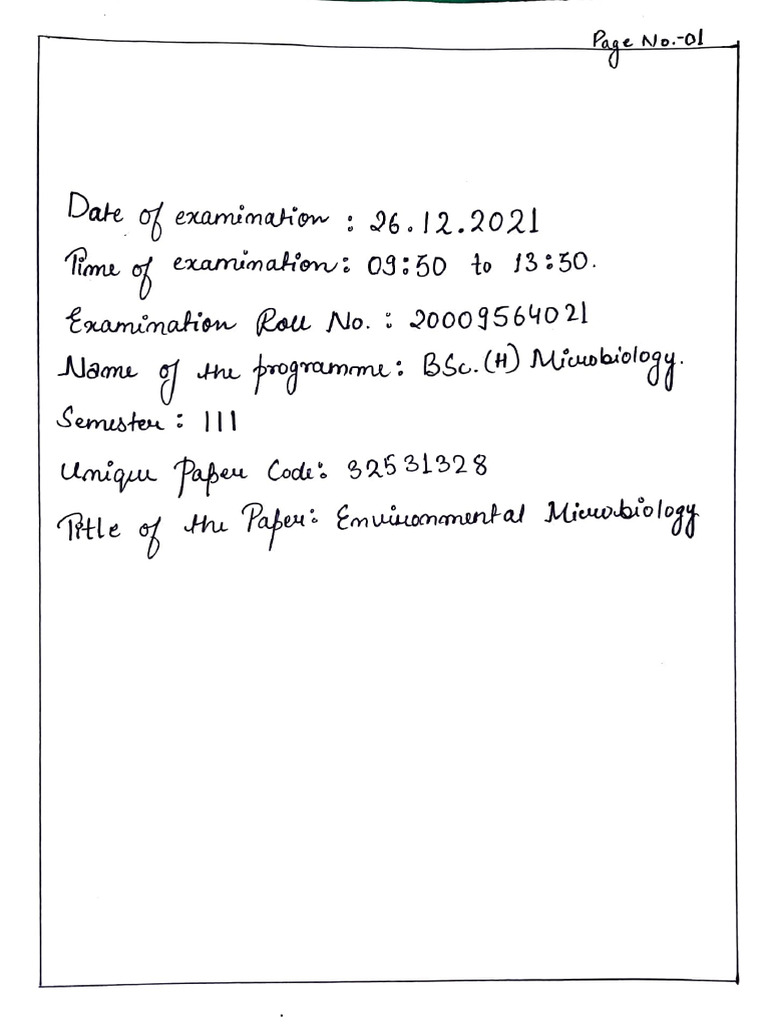 Page No.-01
Date of examination : 26.12.2021
Time of examination: 09:50 to 13:50.
Examination Roll No. : 20009564021
Name of the programme: BSc.(H) Microbiology.
Semester : III
Unique Paper Code: 32531328
Title of the Paper: Environmental Microbiology